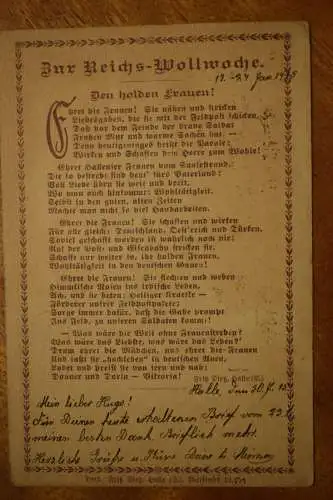 Zur Reichs-Wollwoche.
18.-24 Jan. 1915
Den holden Frauen!
Ehret die Frauen! Sie nähen und stricken
Liebesgaben, die sie mit der Feldpost schicken,
Daß vor dem Feinde der brave Soldat
Frohen Mut und warme Sachen hat. —
Denn heutigentages heißt die Parole:
Wirken und Schaffen dem Heere zum Wohle!
Ehret Hallenser Frauen vom Saalestrand,
Die so besorgt sind heut' fürs Vaterland!
Voll Liebe üben sie weit und breit,
Wo man auch hinkommt: Wohltätigkeit.
Selbst in den guten, alten Zeiten
Machte man nicht so viel Handarbeiten.
Ehret die Frauen! Sie schaffen und wirken
Für alle gleich: Deutschland, Oest'reich und Türken.
Soviel geschafft worden ist wahrlich noch nie;
Auf der Voll- und Eisenbahn stricken sie.
Schaffet nur weiter so, ihr holden Frauen,
Wohltätigkeit in den deutschen Gauen!
Ehret die Frauen! Sie flechten und weben
Himmlische Maschen ins irdische Leben,
Ach, und sie hüten heiliger Kraefte —
Förderer unsrer Feldpostpakete;
Sorget immer dafür, daß die Gabe prompt
Ins Feld, zu unseren Soldaten kommt!
— Was wäre die Welt ohne Frauenstreben?
Was wäre das Liebste, was wäre das Leben?
Drum ehret die Mädchen, und ehret die Frauen
Und laßt sie „hochleben" in deutschen Auen,
Lobet und preist sie von fern und nah;
Donner und Doria — Viktoria!
Fritz Dietz, Halle (S.)
Halle, den 30./1. 15.
Mein lieber Hugo!
Für Deinen heute erhaltenen Brief vom 23./1.
meinen besten Dank. Brieflich mehr.
Herzliche Grüße u. Küsse
Halle (S.)